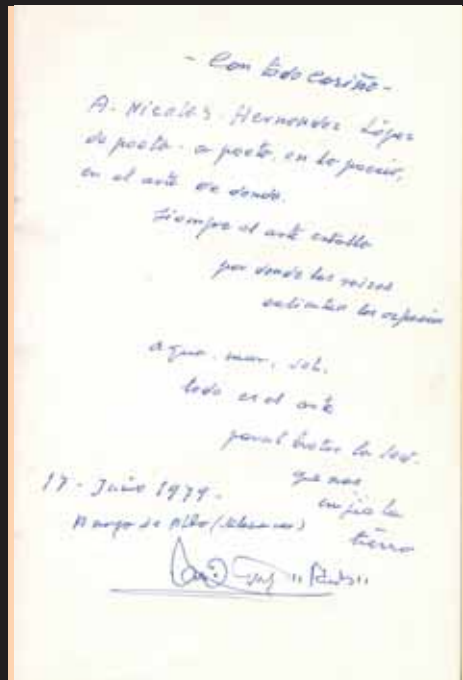 - Con todo cariño -
A. Nicolás Hernández López
de poeta a poeta, en la poesía,
en el arte de donde.
Siempre el arte estalla
por donde las raices
calientan los espacios
agua, mar, sol.
todo es el arte
para
que nos
la
tierra
17 - Junio 1979 -
de Alba (Salamanca)